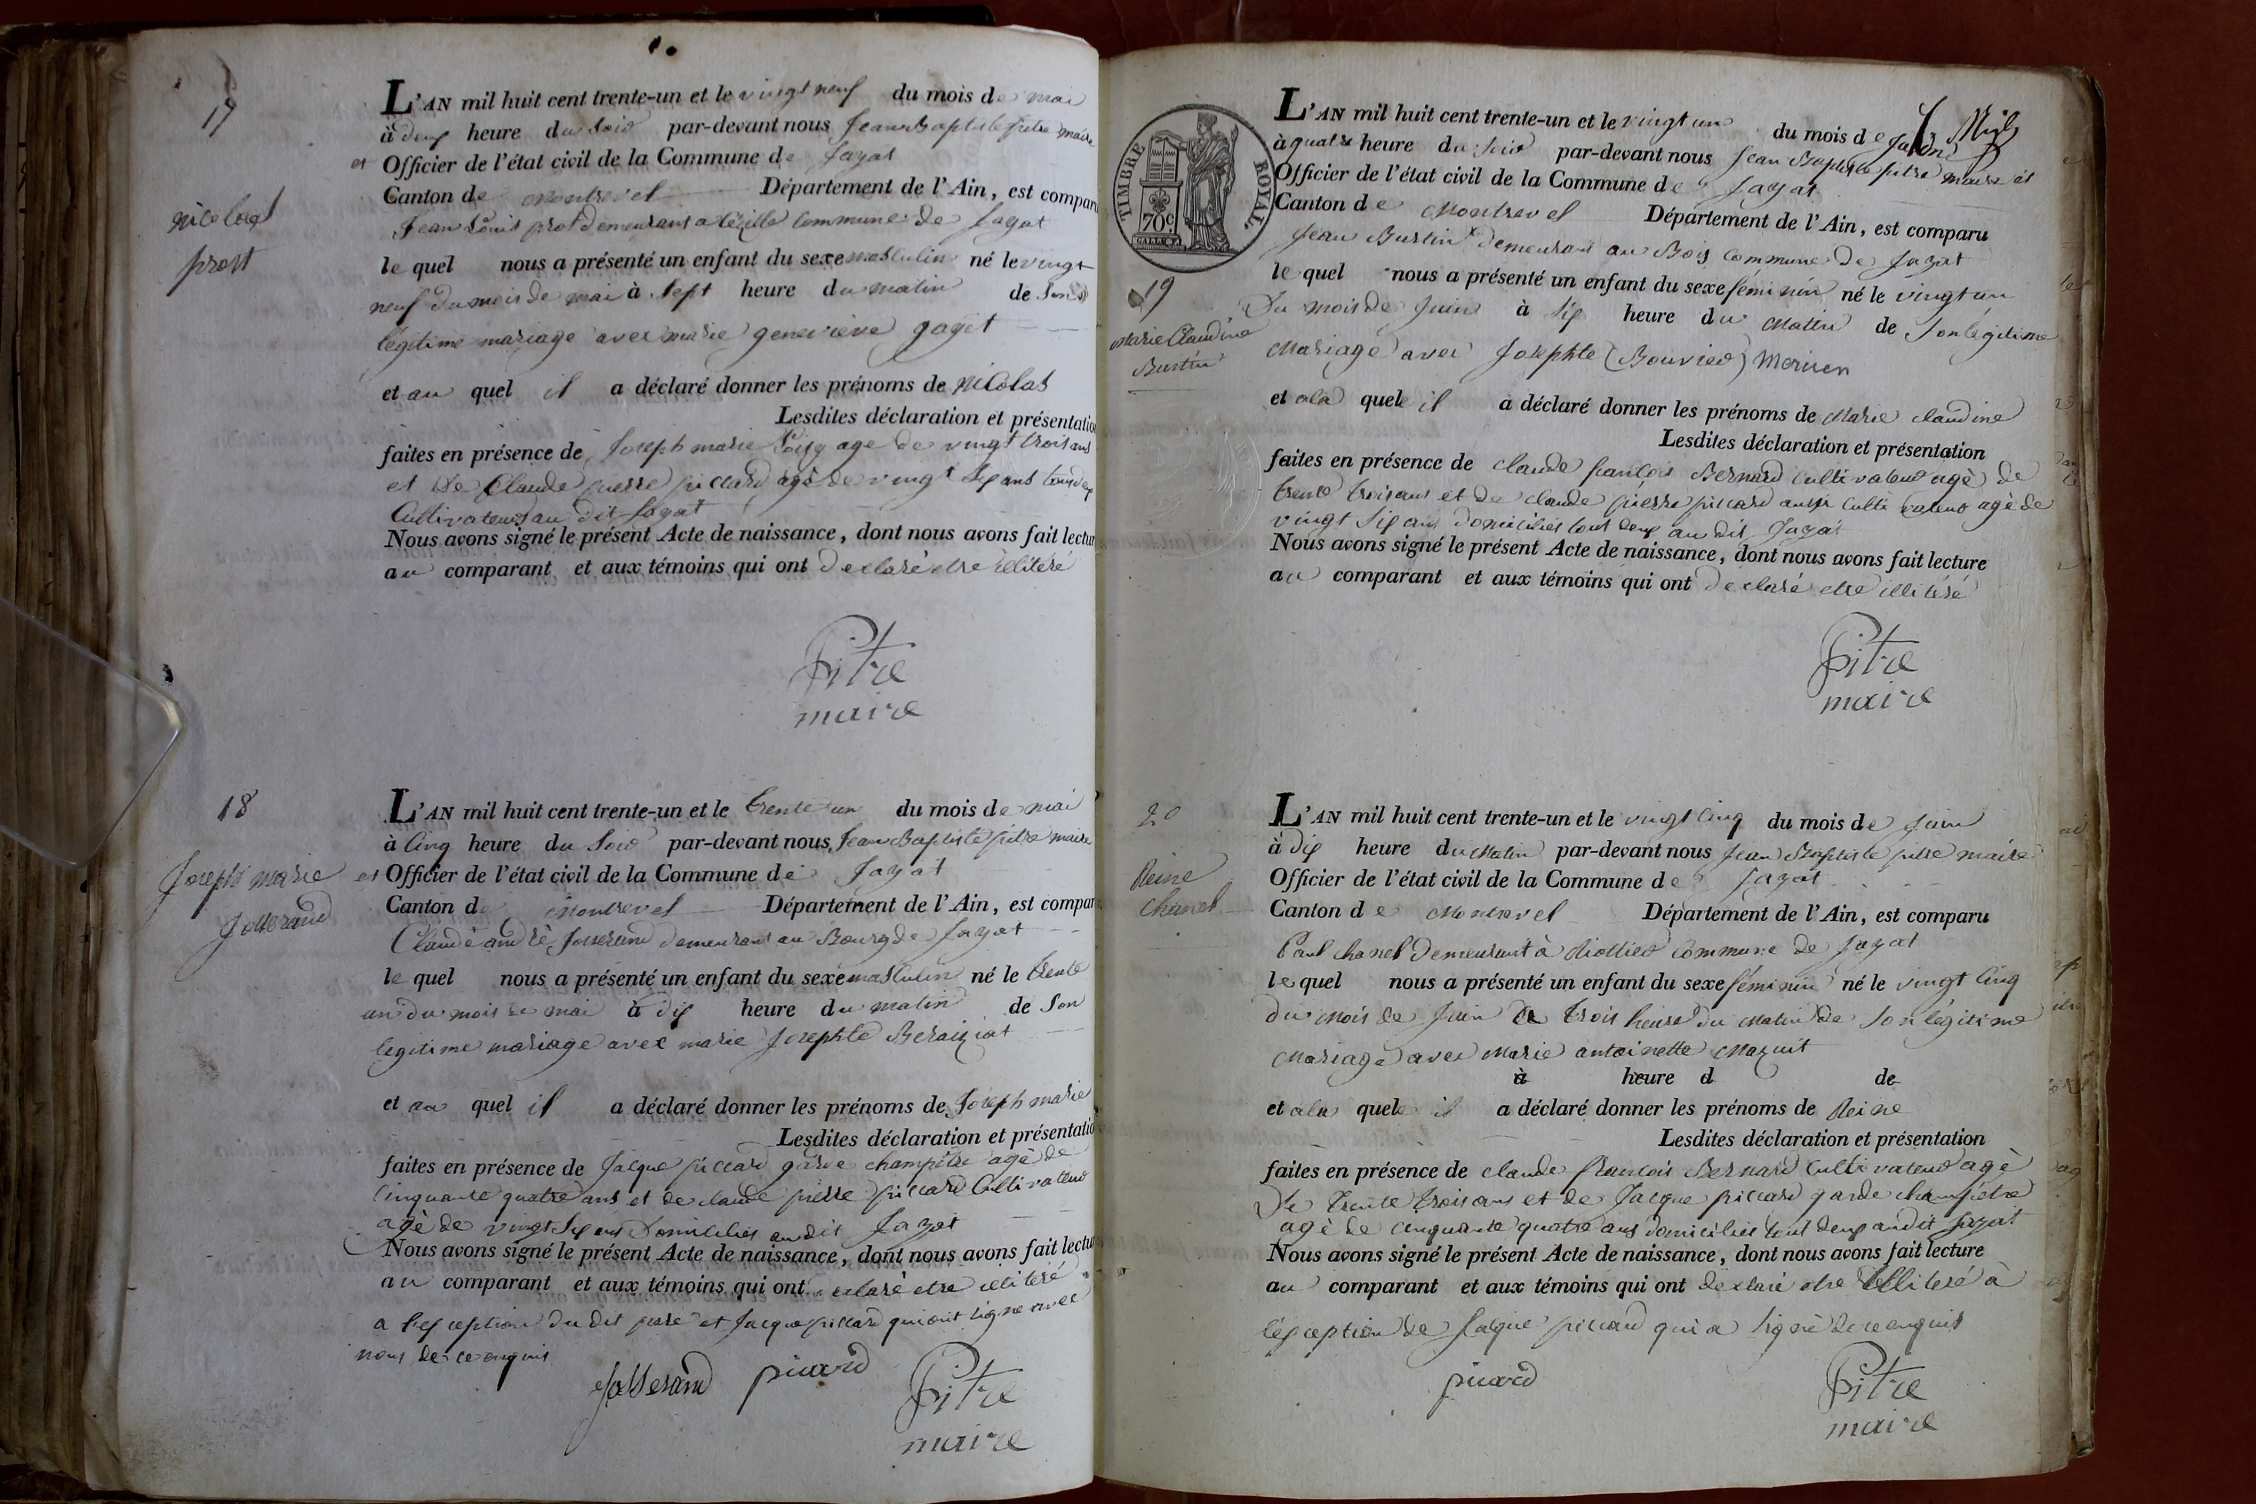 17
nicolas
prost
L'AN mil huit cent trente-un et le vingt neuf du mois de mai
à deux heure du soir par-devant nous Jean Baptiste pitre maire
et Officier de l'état civil de la Commune de Jayat
Canton de Montrevel Département de l'Ain, est compar
Jean Louis prost demeurant a commune de Jayat
le quel nous a présenté un enfant du sexe masculin né le vingt
neuf du mois de mai à sept heure du matin de son
légitime mariage avec marie geneviève goyet
et au quel il a déclaré donner les prénoms de nicolas
Lesdites déclaration et présentatio
faites en présence de Joseph marie age de vingt trois ans
et de Claude pierre piccard agé de vingt six ans tous deux
Cultivateurs au dit Jayat
Nous avons signé le présent Acte de naissance, dont nous avons fait lectur
au comparant et aux témoins qui ont declaré etre illiteré
Pitre
maire
18
Joseph marie
Josserand
L'AN mil huit cent trente-un et le trente un du mois de mai
à cinq heure du soir par-devant nous Jean Baptiste pitre maire
et Officier de l'état civil de la Commune de Jayat
Canton de Montrevel Département de l'Ain, est compar
Claude andré Josserand demeurant au Bourg de Jayat
le quel nous a présenté un enfant du sexe masculin né le trente
un du mois de mai à dix heure du matin de son
legitime mariage avec marie Josephte Beraiziat
et au quel il a déclaré donner les prénoms de Joseph marie
Lesdites déclaration et présentatio
faites en présence de Jacque piccard garde champêtre agé de
cinquante quatre ans et de claude pierre piccard Cultivateur
agé de vingt six ans Domiciliés au dit Jayat
Nous avons signé le présent Acte de naissance, dont nous avons fait lectu
au comparant et aux témoins qui ont declaré etre illiteré
a l'exception du dit pere et Jacque piccard qui ont signe avec
nous de ce enquis
Josserand picard Pitre
maire
TIMBRE ROYAL
70c
19
Marie Claudine
Burtin
L'AN mil huit cent trente-un et le vingt un du mois de Juin
à quatre heure du soir par-devant nous Jean Baptiste pitre maire et
Officier de l'état civil de la Commune de Jayat
Canton de Montrevel Département de l'Ain, est comparu
Jean Burtin demeurant au Bois commune de Jayat
le quel nous a présenté un enfant du sexe féminin né le vingt un
Du mois de Juin à six heure du Matin de son légitime
Mariage avec Josephte (Bouvier)
et ala quele il a déclaré donner les prénoms de Marie claudine
Lesdites déclaration et présentation
faites en présence de claude françois Bernard cultivateur agé de
trente trois ans et de claude pierre piccard aussi cultivateur agé de
vingt six ans domiciliés tout deux au dit Jayat
Nous avons signé le présent Acte de naissance, dont nous avons fait lecture
au comparant et aux témoins qui ont declaré etre illiteré
Pitre
maire
20
Reine
Chanel
L'AN mil huit cent trente-un et le vingt cinq du mois de juin
à dix heure du Matin par-devant nous Jean Baptiste pitre maire
Officier de l'état civil de la Commune de Jayat
Canton de Montrevel Département de l'Ain, est comparu
Paul chanel Demeurant à commune de Jayat
le quel nous a présenté un enfant du sexe féminin né le vingt cinq
du Mois de Juin trois heure du Matin de son légitime
Mariage avec Marie antoinette Mazuit
à heure d de
et ala quele il a déclaré donner les prénoms de Reine
Lesdites déclaration et présentation
faites en présence de claude francois Bernard cultivateur agé
De trente trois ans et de Jacque piccard garde champetre
agé de cinquante quatre ans domiciliés tout deux au dit Jayat
Nous avons signé le présent Acte de naissance, dont nous avons fait lecture
au comparant et aux témoins qui ont declaré etre illiteré à
l'exception de Jacque piccard qui a signé de ce enquis
picard Pitre
maire